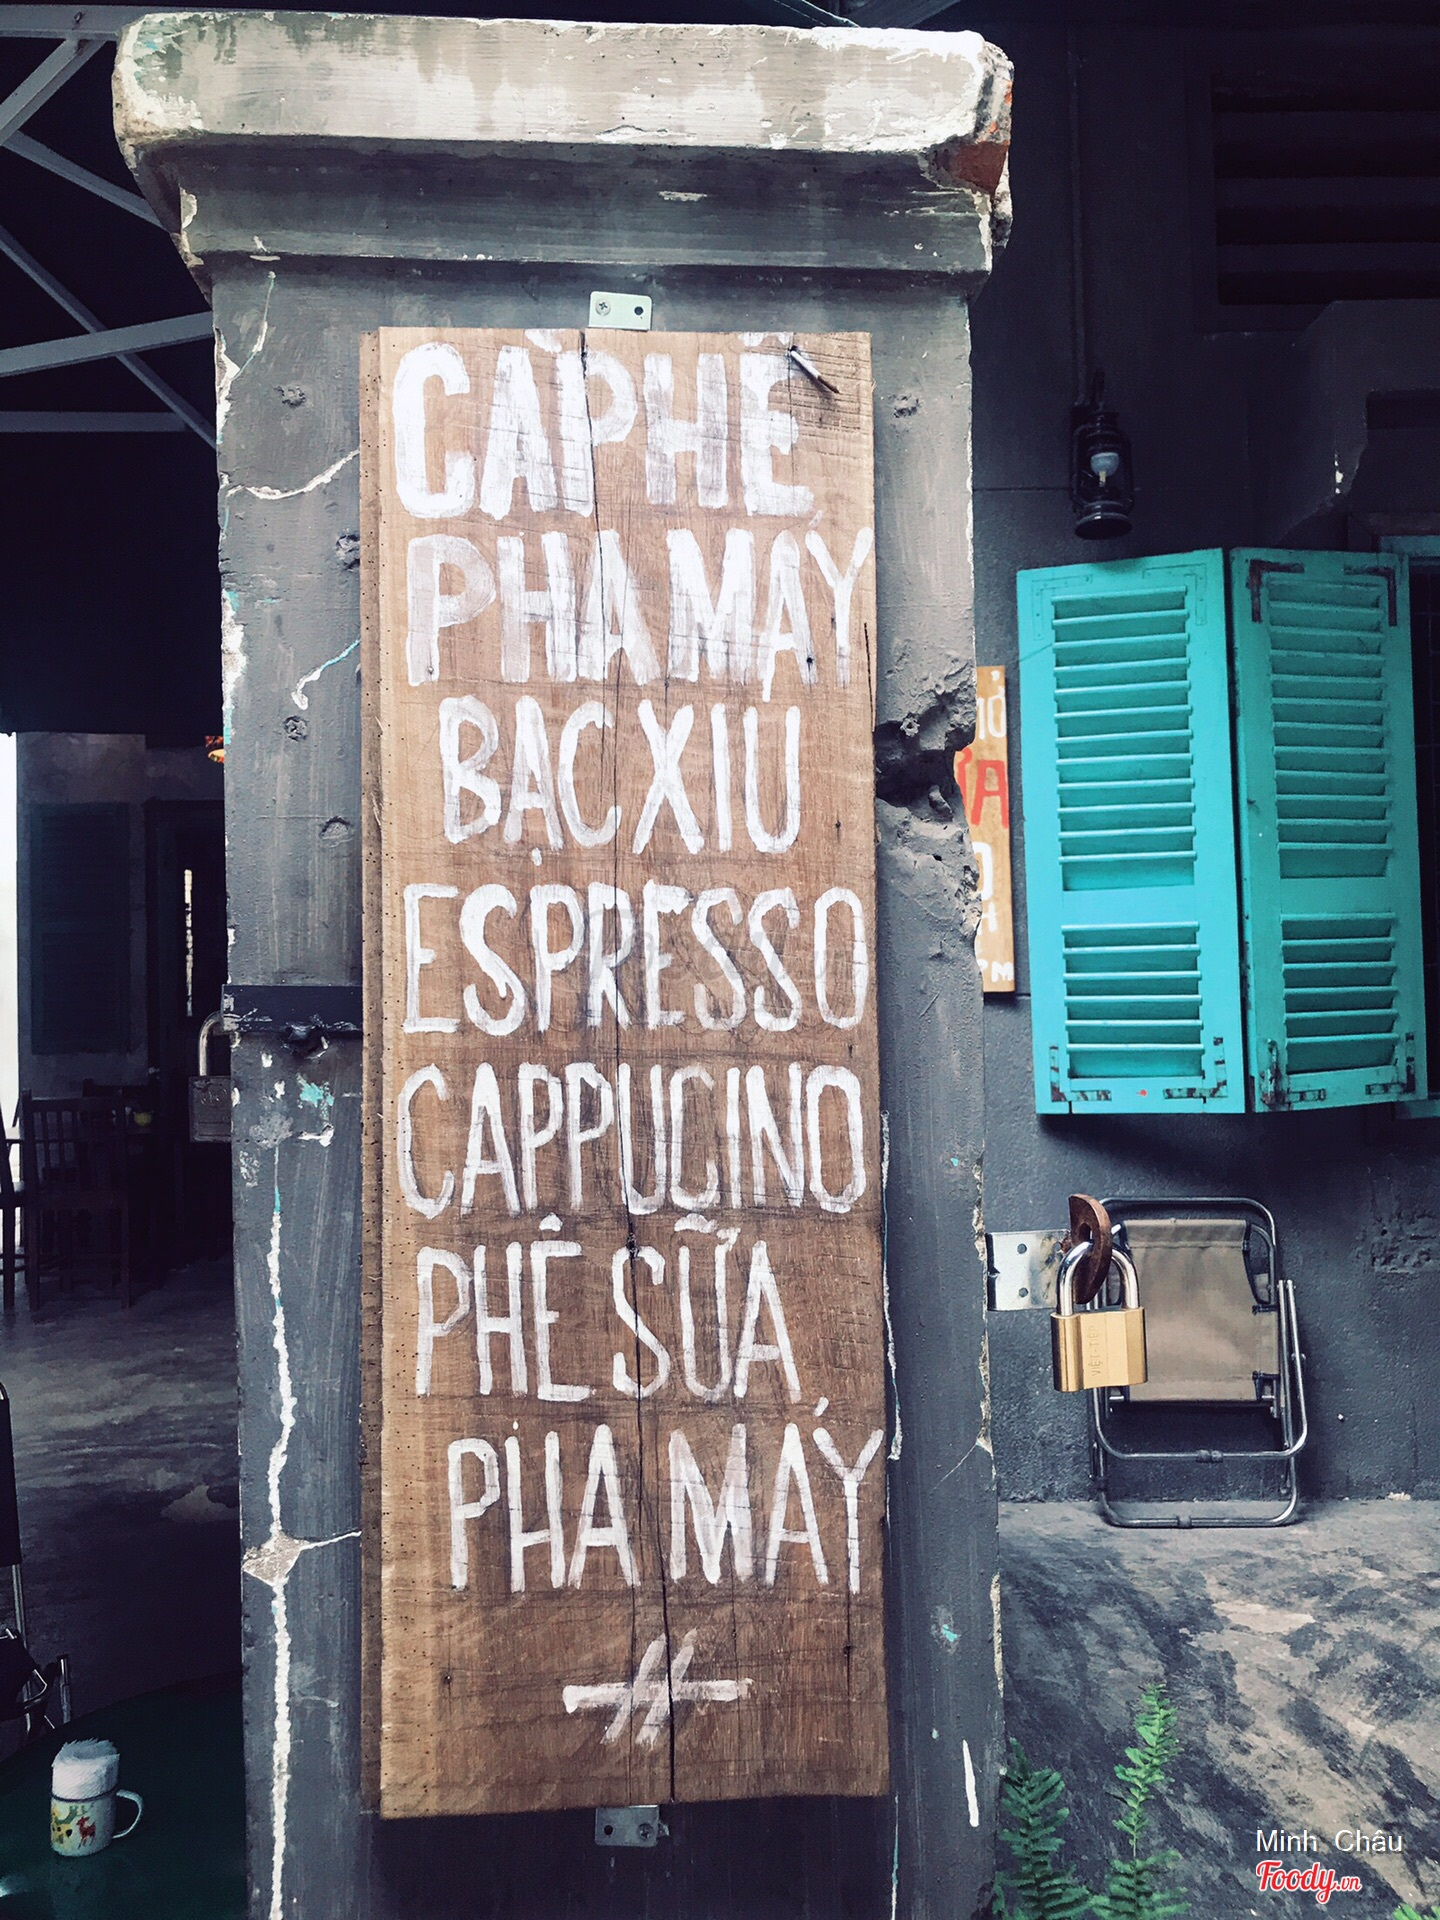 CÀ PHÊ
PHA MÁY
BẠC XIU
ESPRESSO
CAPPUCINO
PHÊ SỮA
PHA MÁY
VIỆT-TIỆP
Minh Châu
Foody.vn